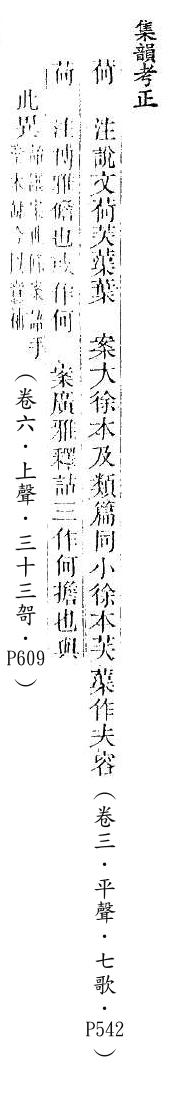 集韻考正
荷　注說文荷芙蕖葉　案大徐本及類篇同小徐本芙蕖作夫容（卷三．平聲．七歌．P542）
荷　注博雅儋也或作何　案廣雅釋詁三作何擔也與
此異（卷六．上聲．三十三哿．P609）